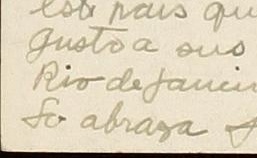 este pais qu
gusto a sus
Rio de Janeir
Lo abraza